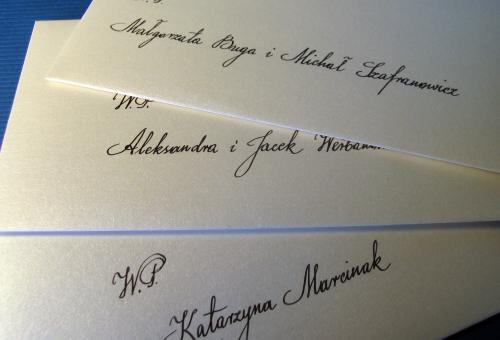 Małgorzata Buga i Michał Szafranowicz
W.P.
Aleksandra i Jacek
W.P.
Katarzyna Marcinak